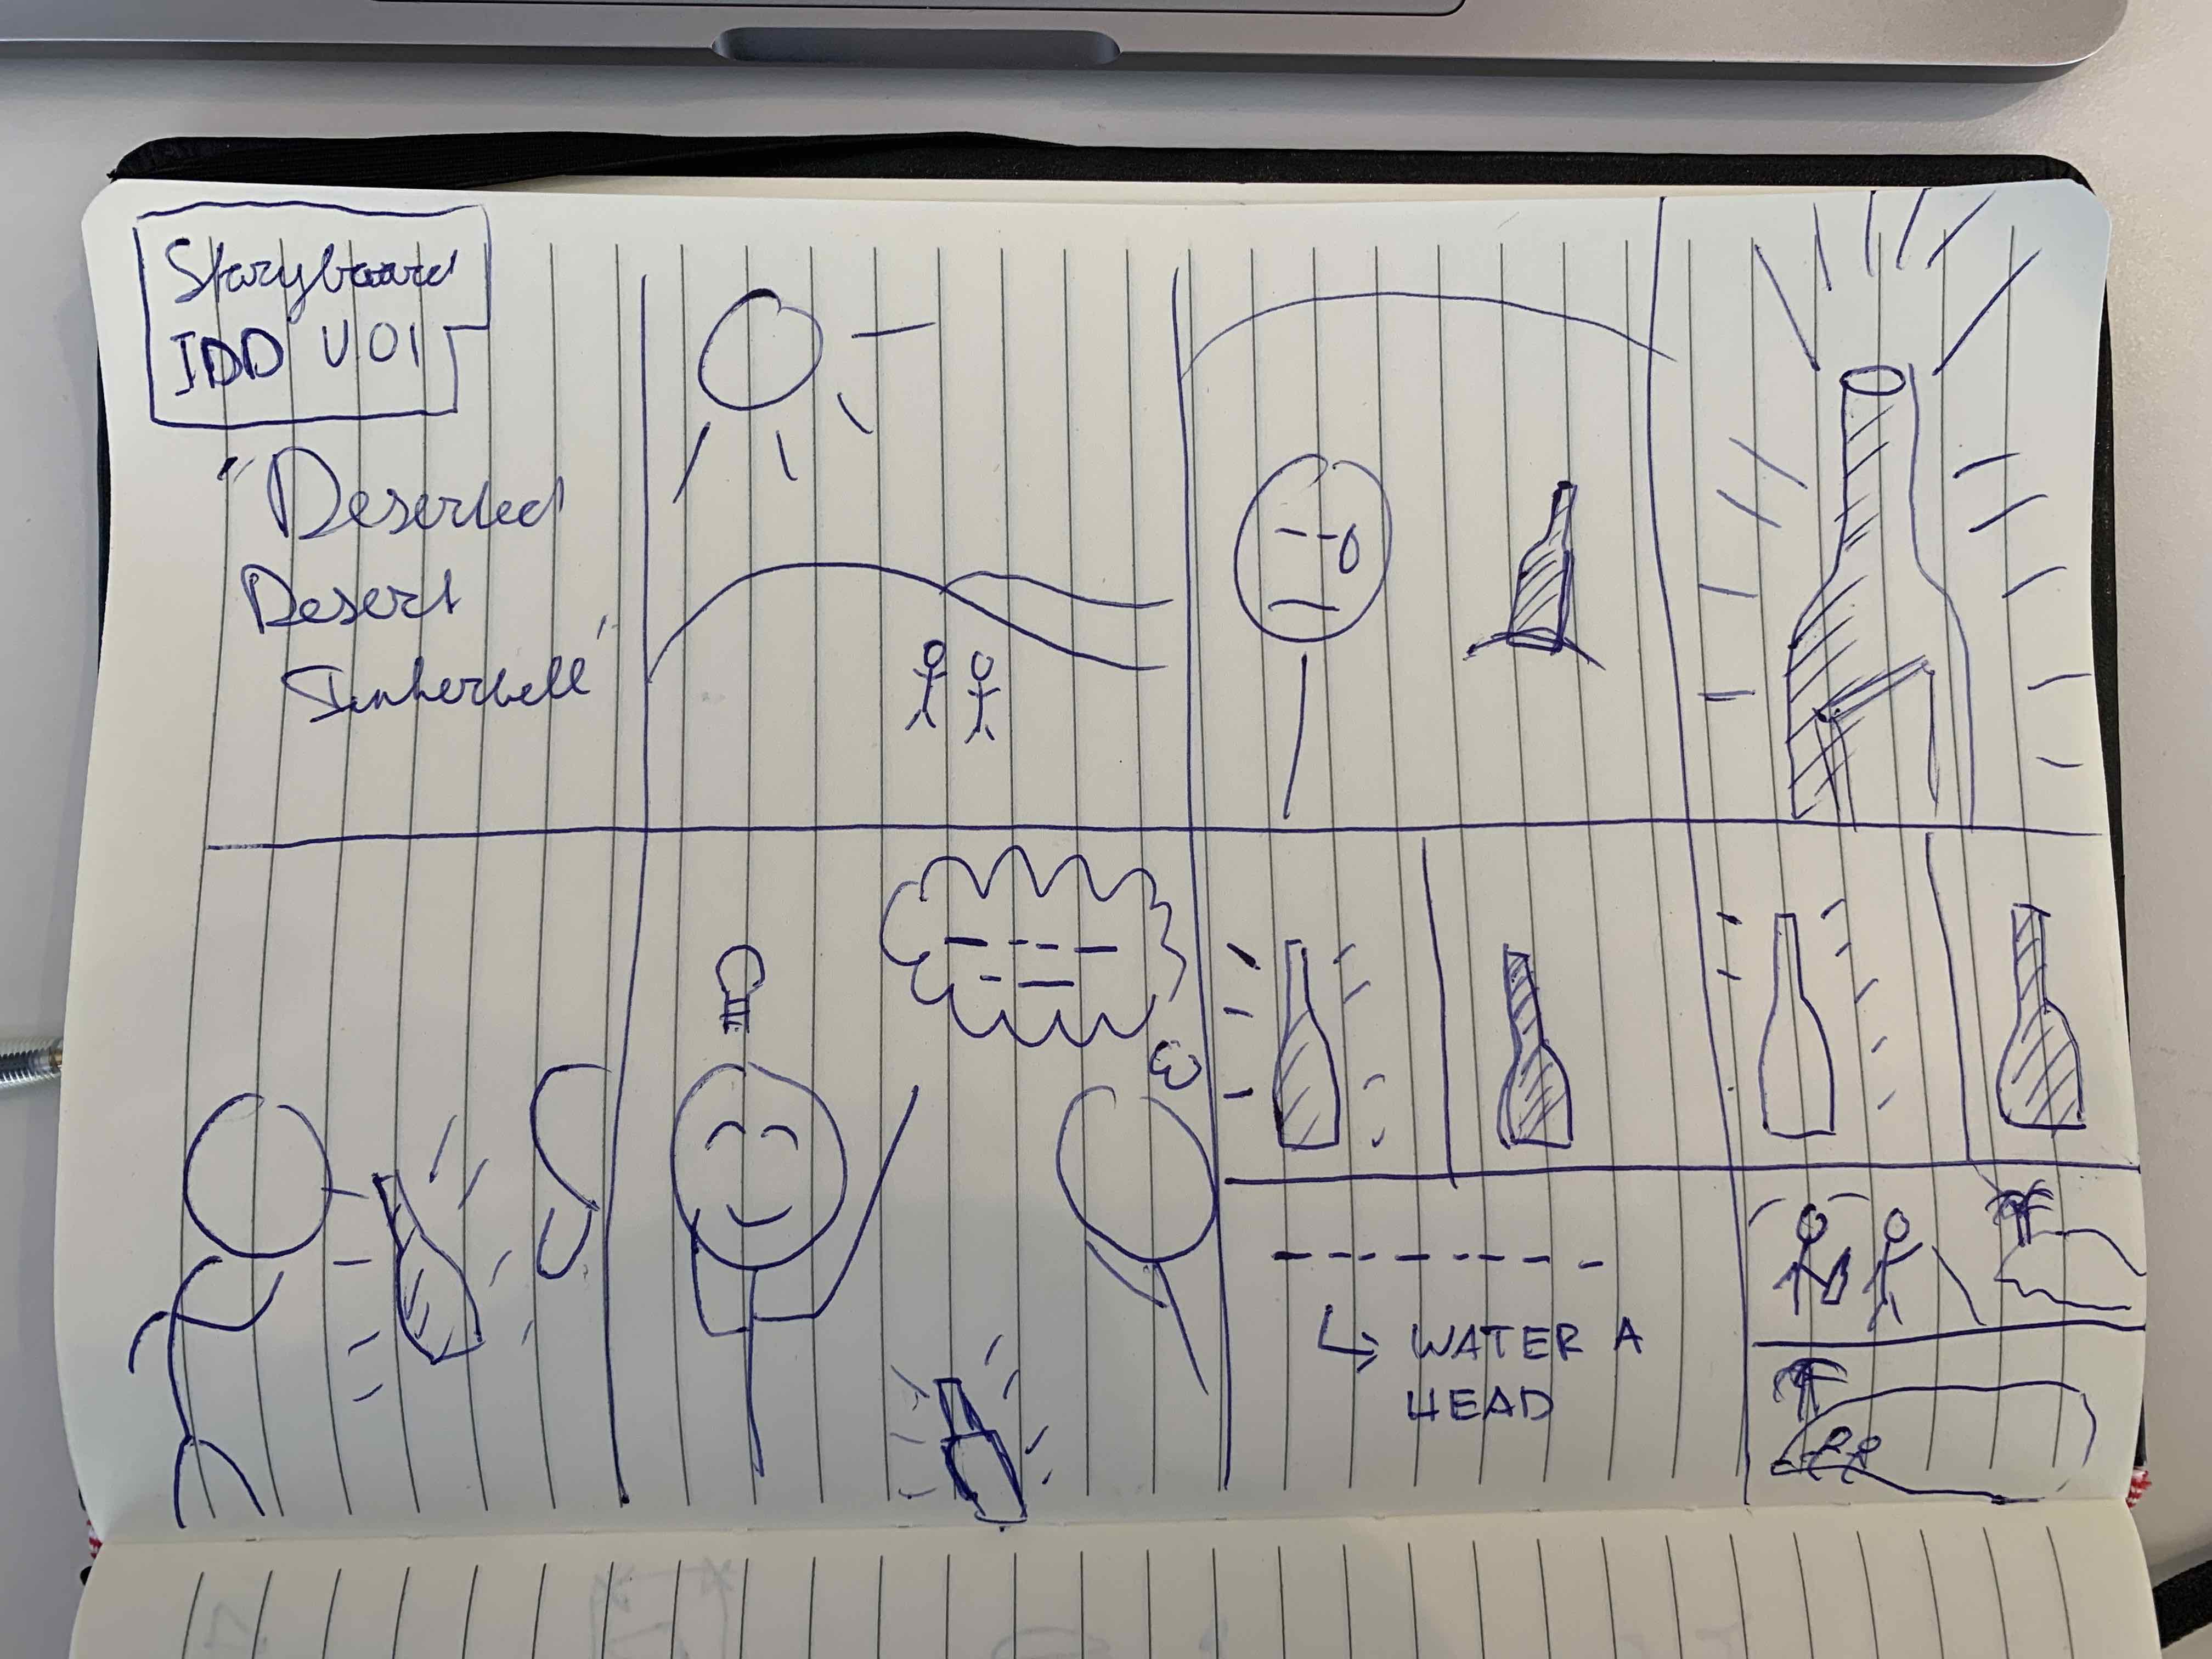 Storyboard
IDD V.01
"Deserted
Desert
Tinkerbell"
WATER A
HEAD